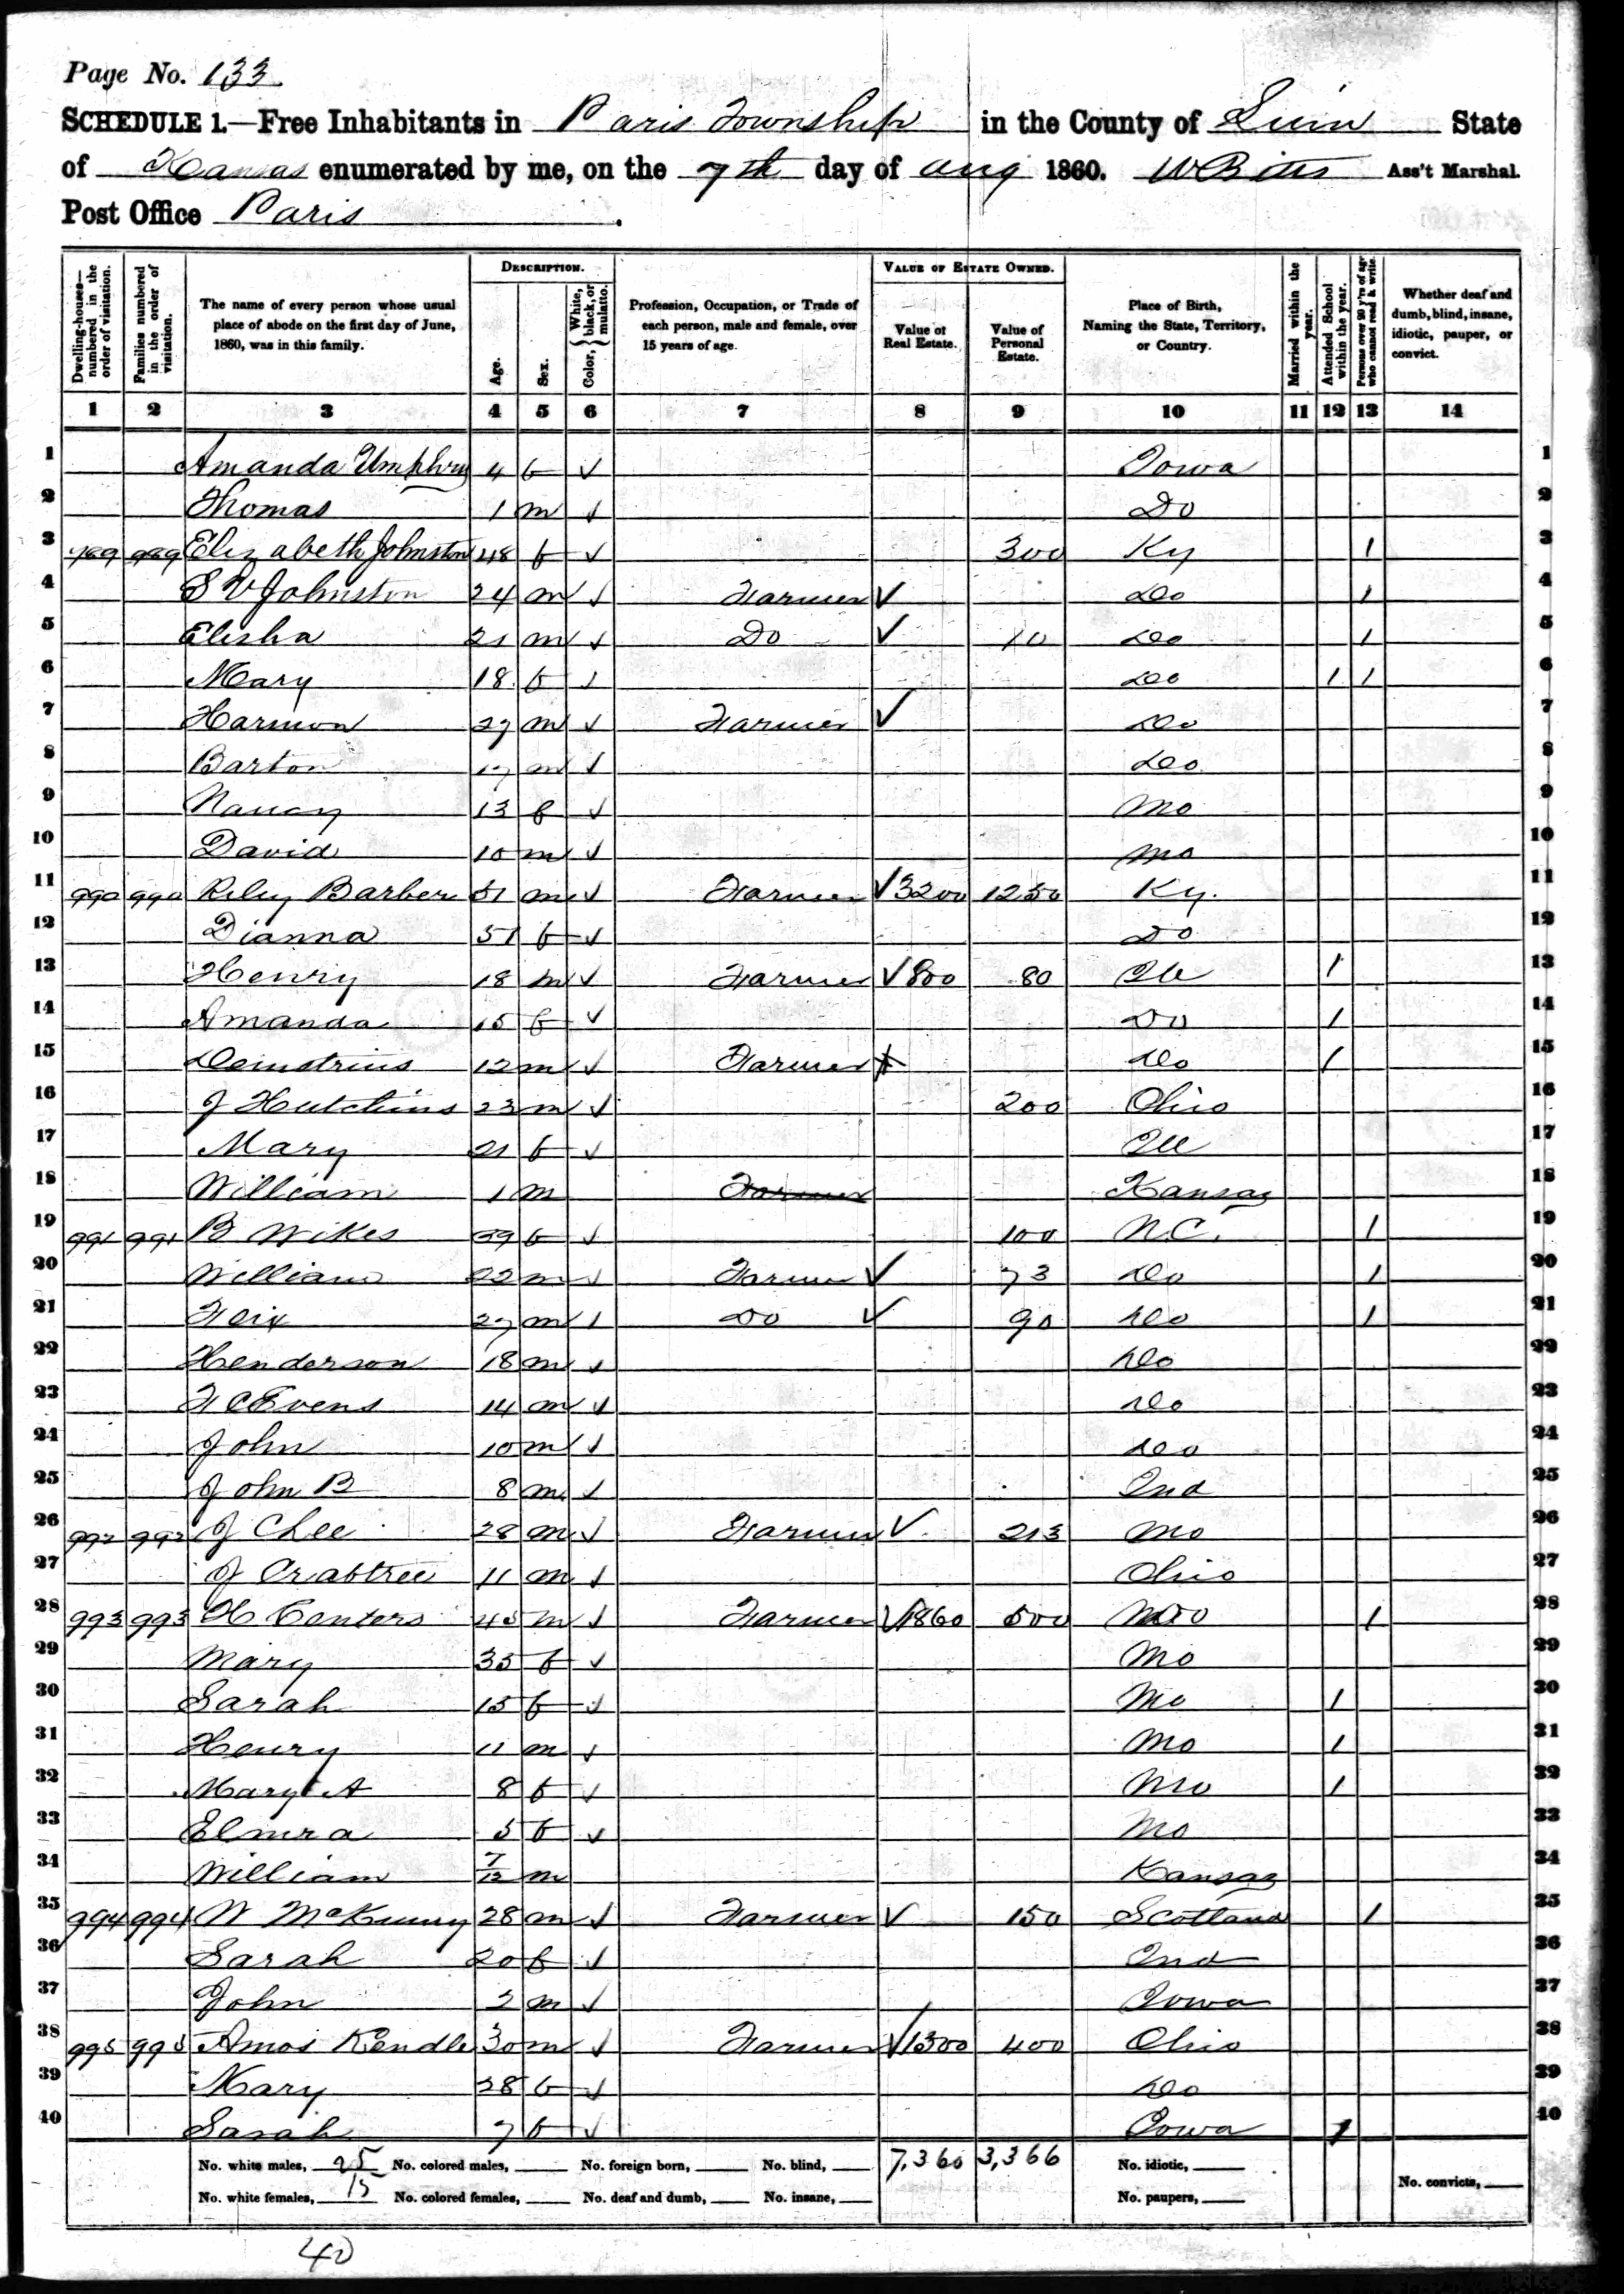 Page No. 133
SCHEDULE 1.—Free Inhabitants in Paris Township in the County of Linn State
of Kansas enumerated by me, on the 7th day of Aug 1860. Ass't Marshal.
Post Office Paris.
Dwelling-houses—numbered in the order of visitation.
Families numbered in the order of visitation.
The name of every person whose usual place of abode on the first day of June, 1860, was in this family.
DESCRIPTION.
Age.
Sex.
Color, { White, black, or mulatto.
Profession, Occupation, or Trade of each person, male and female, over 15 years of age.
VALUE OF ESTATE OWNED.
Value of Real Estate.
Value of Personal Estate.
Place of Birth, Naming the State, Territory, or Country.
Married within the year.
Attended School within the year.
Persons over 20 y'rs of age who cannot read & write.
Whether deaf and dumb, blind, insane, idiotic, pauper, or convict.
1 2 3 4 5 6 7 8 9 10 11 12 13 14
1 Amanda Umphrey 4 f ✓ Iowa 1
2 Thomas 1 m ✓ Do 2
3 989 989 Elizabeth Johnston 48 f ✓ 300 Ky 1 3
4 S V Johnston 24 m ✓ Farmer ✓ Do 1 4
5 Elisha 21 m ✓ Do ✓ 10 Do 1 5
6 Mary 18 f ✓ Do 1 1 6
7 Harmon 27 m ✓ Farmer ✓ Do 7
8 Barton 17 m ✓ Do 8
9 Nancy 13 f ✓ Mo 9
10 David 10 m ✓ Mo 10
11 990 990 Riley Barber 51 m ✓ Farmer ✓ 3200 1250 Ky. 11
12 Dianna 51 f ✓ Do 12
13 Henry 18 m ✓ Farmer ✓ 800 80 Ill 1 13
14 Amanda 15 f ✓ Do 1 14
15 Demetrius 12 m ✓ Farmer Do 1 15
16 J Hutchins 23 m ✓ 200 Ohio 16
17 Mary 21 f ✓ Ill 17
18 William 1 m Farmer Kansas 18
19 991 991 B Wikes 39 f ✓ 100 N.C. 1 19
20 William 22 m ✓ Farmer ✓ 73 Do 1 20
21 27 m ✓ Do ✓ 90 Do 1 21
22 Henderson 18 m ✓ Do 22
23 Evens 14 m ✓ Do 23
24 John 10 m ✓ Do 24
25 John B 8 m ✓ Ind 25
26 992 992 J Chee 28 m ✓ Farmer ✓ 213 Mo 26
27 J Crabtree 11 m ✓ Ohio 27
28 993 993 H Centers 45 m ✓ Farmer ✓ 1860 500 Mo 1 28
29 Mary 35 f ✓ Mo 29
30 Sarah 15 f ✓ Mo 1 30
31 Henry 11 m ✓ Mo 1 31
32 Mary A 8 f ✓ Mo 1 32
33 Elmira 5 f ✓ Mo 33
34 William 7/12 m Kansas 34
35 994 994 W McKinney 28 m ✓ Farmer ✓ 150 Scotland 1 35
36 Sarah 20 f ✓ Ind 36
37 John 2 m ✓ Iowa 37
38 995 995 Amos Kendle 30 m ✓ Farmer ✓ 1300 400 Ohio 38
39 Mary 28 f ✓ Do 39
40 Sarah 7 f ✓ Iowa 1 40
No. white males, 25 No. colored males, No. foreign born, No. blind, 7,360 3,366 No. idiotic,
No. white females, 15 No. colored females, No. deaf and dumb, No. insane, No. paupers, No. convicts,
40